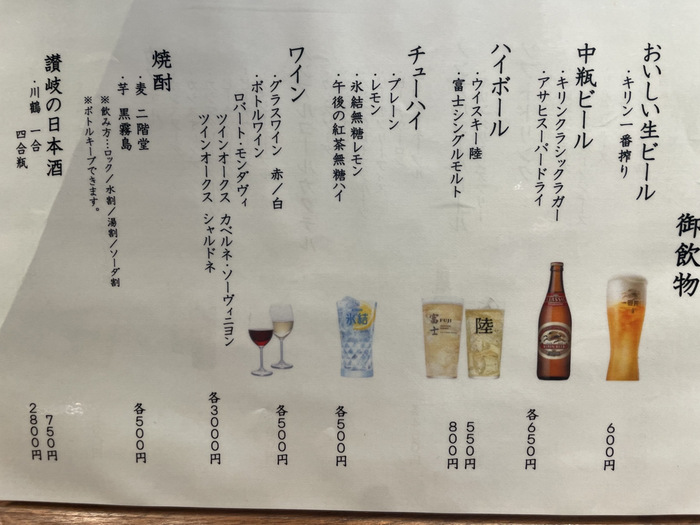 御飲物
おいしい生ビール
・キリン一番搾り
600円
中瓶ビール
・キリンクラシックラガー
・アサヒスーパードライ
各650円
ハイボール
・ウイスキー陸
550円
・富士シングルモルト
800円
チューハイ
・プレーン
・レモン
・氷結無糖レモン
・午後の紅茶無糖ハイ
各500円
ワイン
・グラスワイン 赤/白
各500円
・ボトルワイン
ロバート・モンダヴィ
ツインオークス カベルネ・ソーヴィニヨン
ツインオークス シャルドネ
各3000円
焼酎
・麦 二階堂
・芋 黒霧島
各500円
※飲み方…ロック/水割/湯割/ソーダ割
※ボトルキープできます。
讃岐の日本酒
・川鶴 一合
750円
四合瓶
2800円
陸
富士
氷結
一番搾り